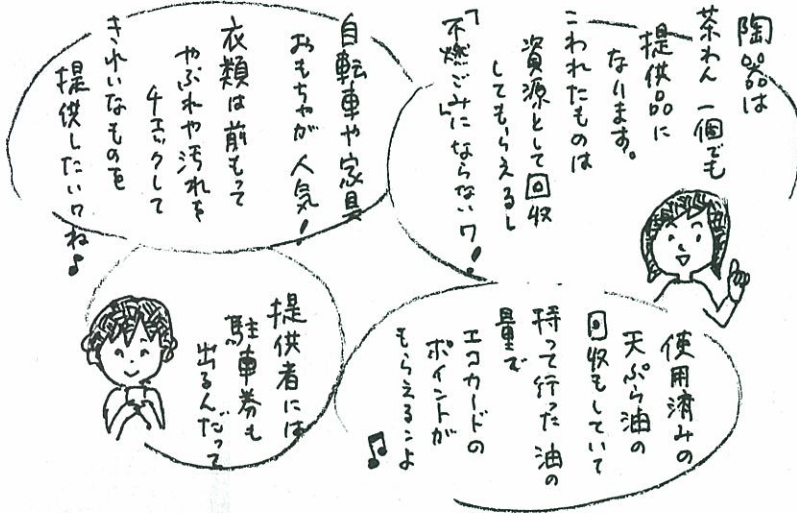 陶器は
茶わん一個でも
提供品に
なります。
こわれたものは
資源として回収
してもらえるし
「不燃ごみ」にならないワ!
自転車や家具
おもちゃが人気!
衣類は前もって
やぶれや汚れを
チェックして
きれいなものを
提供したいワね♪
使用済みの
天ぷら油の
回収もしていて
持って行った油の
量で
エコカードの
ポイントが
もらえるのよ
♫
提供者には
駐車券も
出るんだって